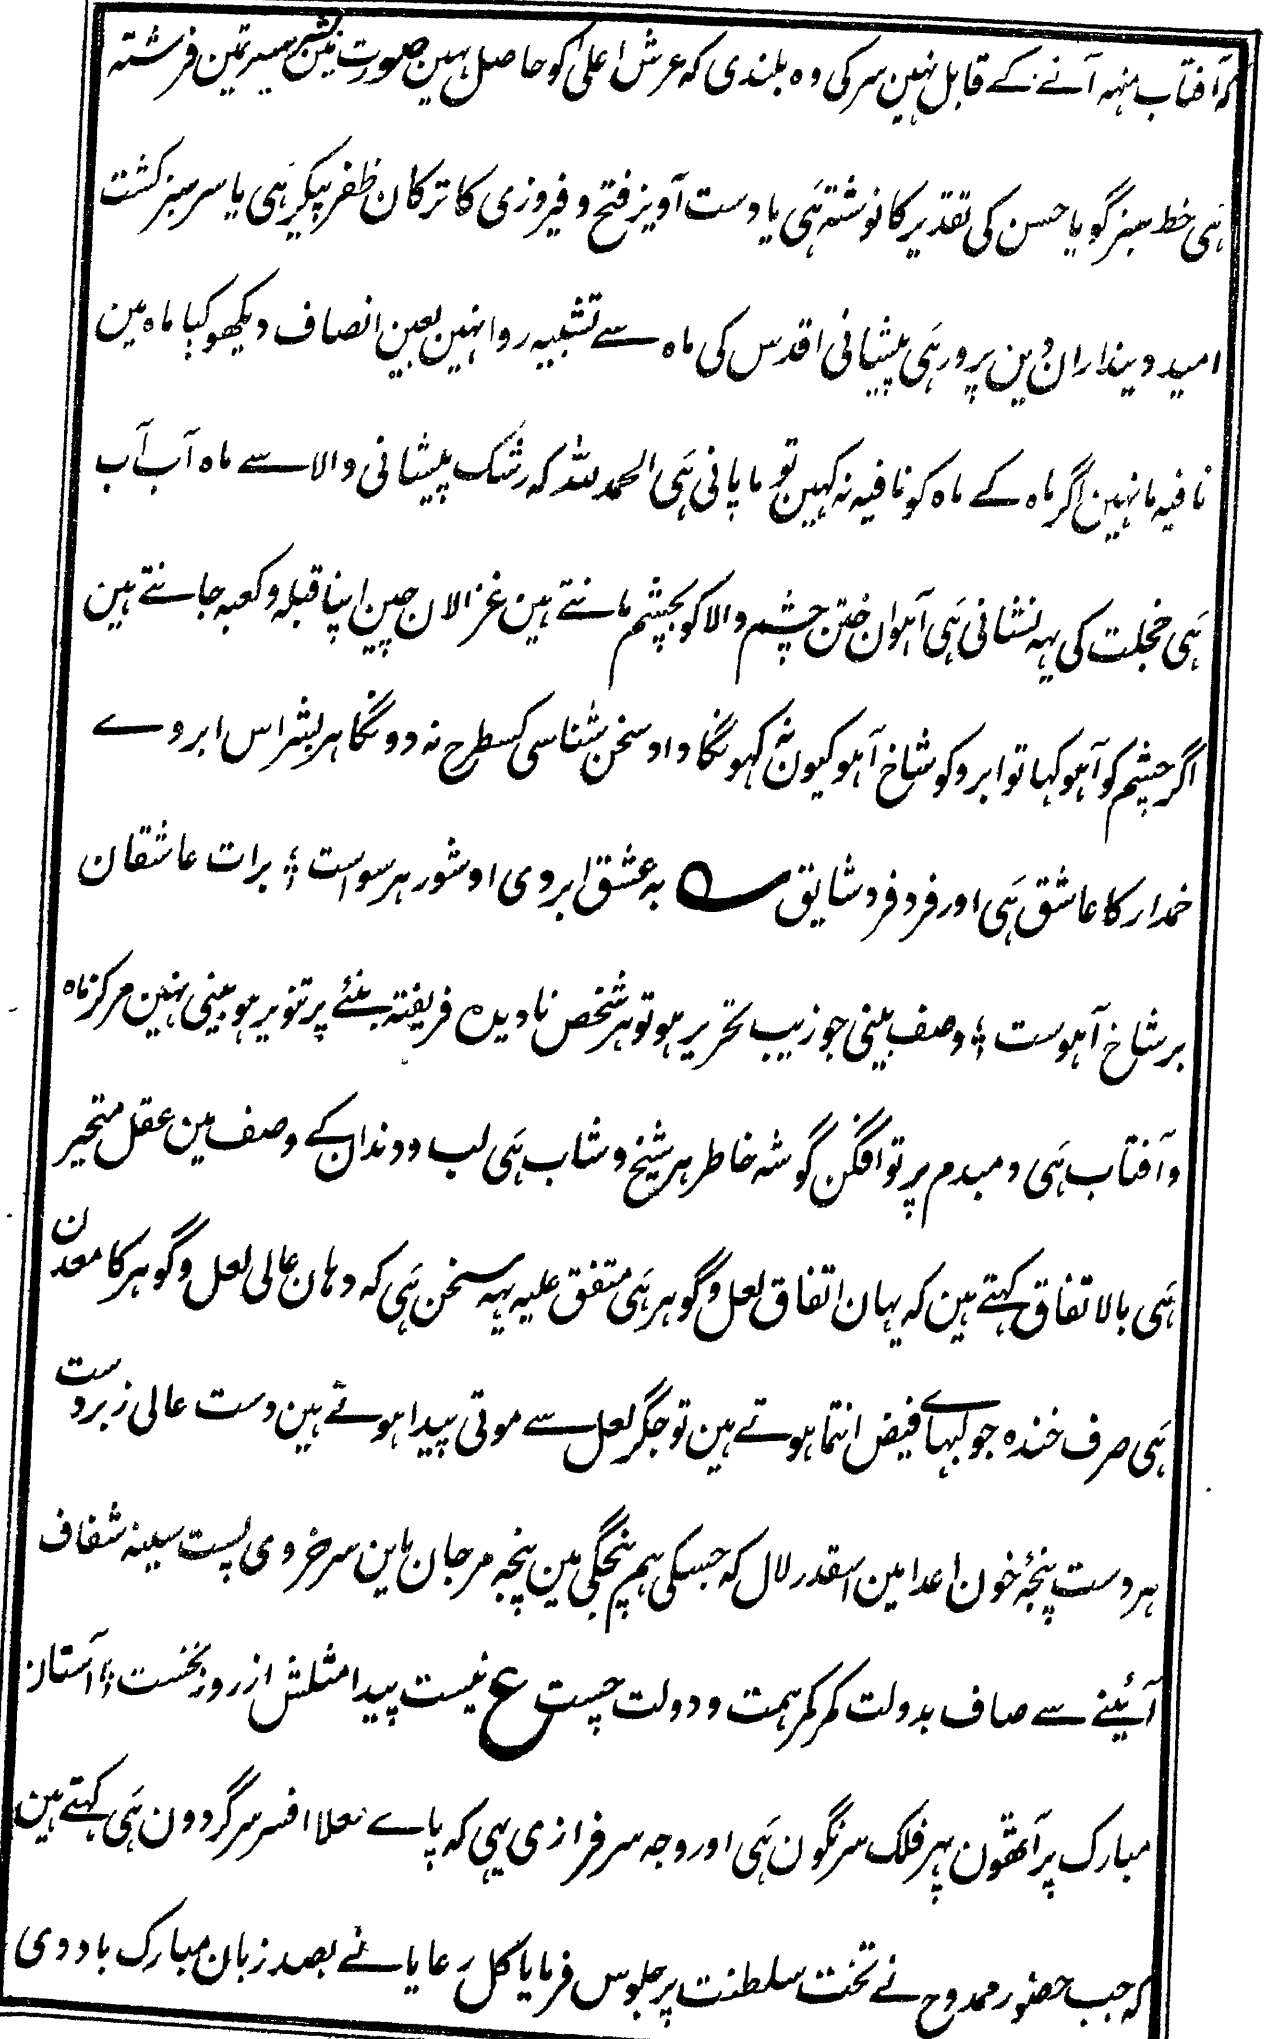 کہ آفتاب منہہ آنے کے قابل نہین سر کی وہ بلندی کہ عرش اعلی کو حاصل نہین صورت مین بشر سیرتمین فرشتہ
ہی خط سبز گویا حسن کی تقدیر کا نوشتہ ہی یا دست آویز فتح و فیروزی کا ترکان ظفر پیکر ہی یا سر سبز کشت
امید دینداران دین پرور ہی پیشانی اقدس کی ماہ سے تشبیہ روا نہین بعین انصاف دیکھو کیا ماہ مین
نافیہ ما نہین اگر ماہ کے ماہ کو نافیہ نہ کہین تو ما پانی ہی الحمد للہ کہ رشک پیشانی والا سے ماہ آب آب
ہی خجلت کی یہہ نشانی ہی آہوان ختن چشم والا کو بچشم مانتے ہین غزالان چین اپنا قبلہ و کعبہ جانتے ہین
اگر چشم کو آہو کہا تو ابرو کو شاخ آہو کیون نہ کہونگا داد سخن شناسی کسطرح نہ دونگا ہر بشر اس ابروے
خمدار کا عاشق ہی اور فرد فرد شایق ؎ بہ عشق ابروی او شور ہر سو است ؛ برات عاشقان
بر شاخ آہوست ؛ وصف بینی جو زیب تحریر ہو تو ہر شخص نادیدہ فریفتہ بنئے پر تنویر ہو بینی نہین مرکز ماہ
و آفتاب ہی دمبدم پرتو افگن گوشہ خاطر ہر شیخ و شاب ہی لب و دندان کے وصف مین عقل متحیر
ہی بالاتفاق کہتے ہین کہ یہان اتفاق لعل و گوہر ہی متفق علیہ یہہ سخن ہی کہ دہان عالی لعل و گوہر کا معدن
ہی صرف خندہ جو لبہاے فیض انتما ہوتے ہین تو جگر لعل سے موتی پیدا ہوتے ہین دست عالی زبردست
ہر دست پنجۂ خون اعدا مین اسقدر لال کہ جسکی ہم پنجگی مین پنجہ مرجان باین سرخروی پست سینہ شفاف
آئینے سے صاف بدولت کمر کمر ہمت و دولت چست ع نیست پیدا مثلش از روز نخست ؛ آستانہ
مبارک پر آٹھون پہر فلک سرنگون ہی اور وجہ سرفرازی یہی کہ پاے معلا افسر سر گردون ہی کہتے ہین
کہ جب حضور ممدوح نے تخت سلطنت پر جلوس فرمایا کل رعایا نے بصد زبان مبارک باد دی